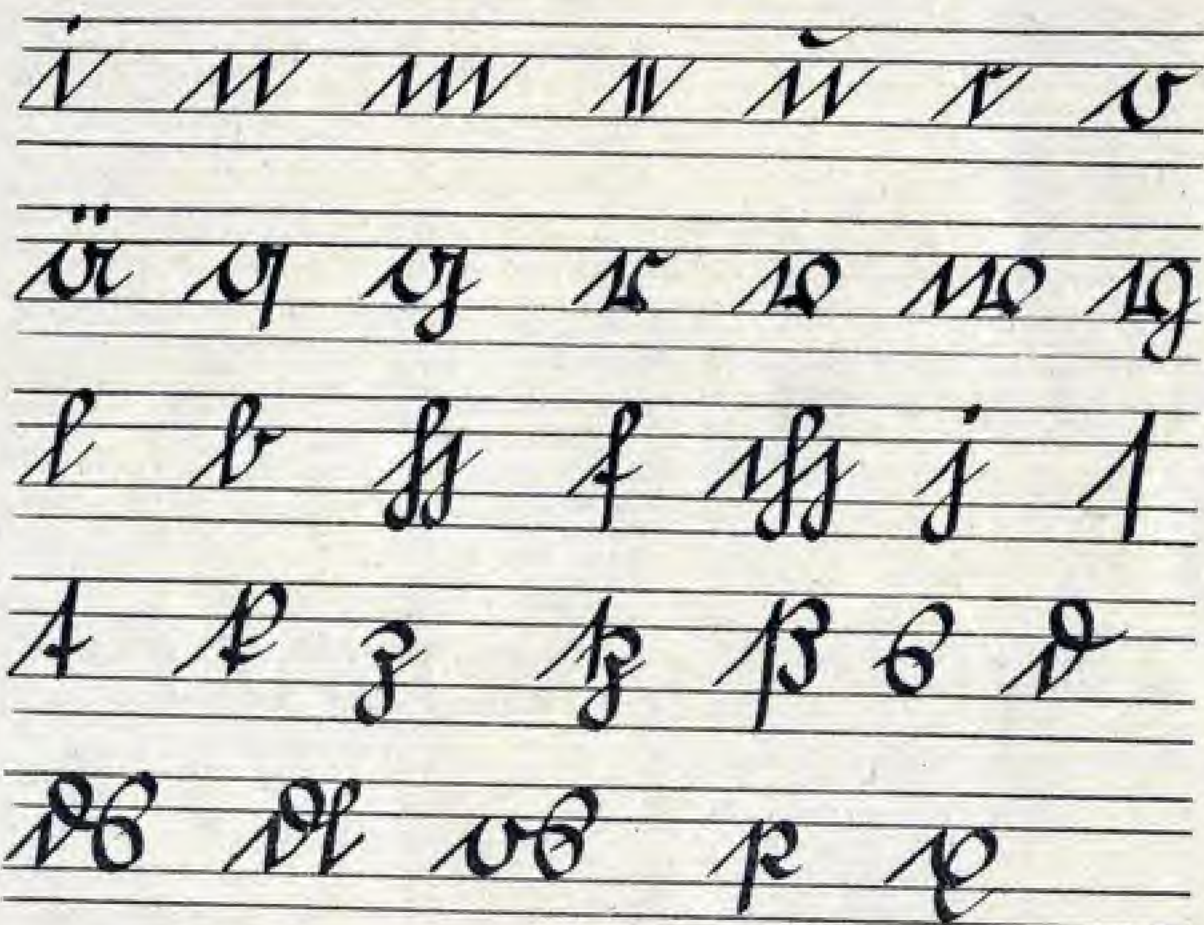 i n m e u c o
ä q g r v w y
l b h f ch j ſ
t k z tz ß s d
ds dl os p x